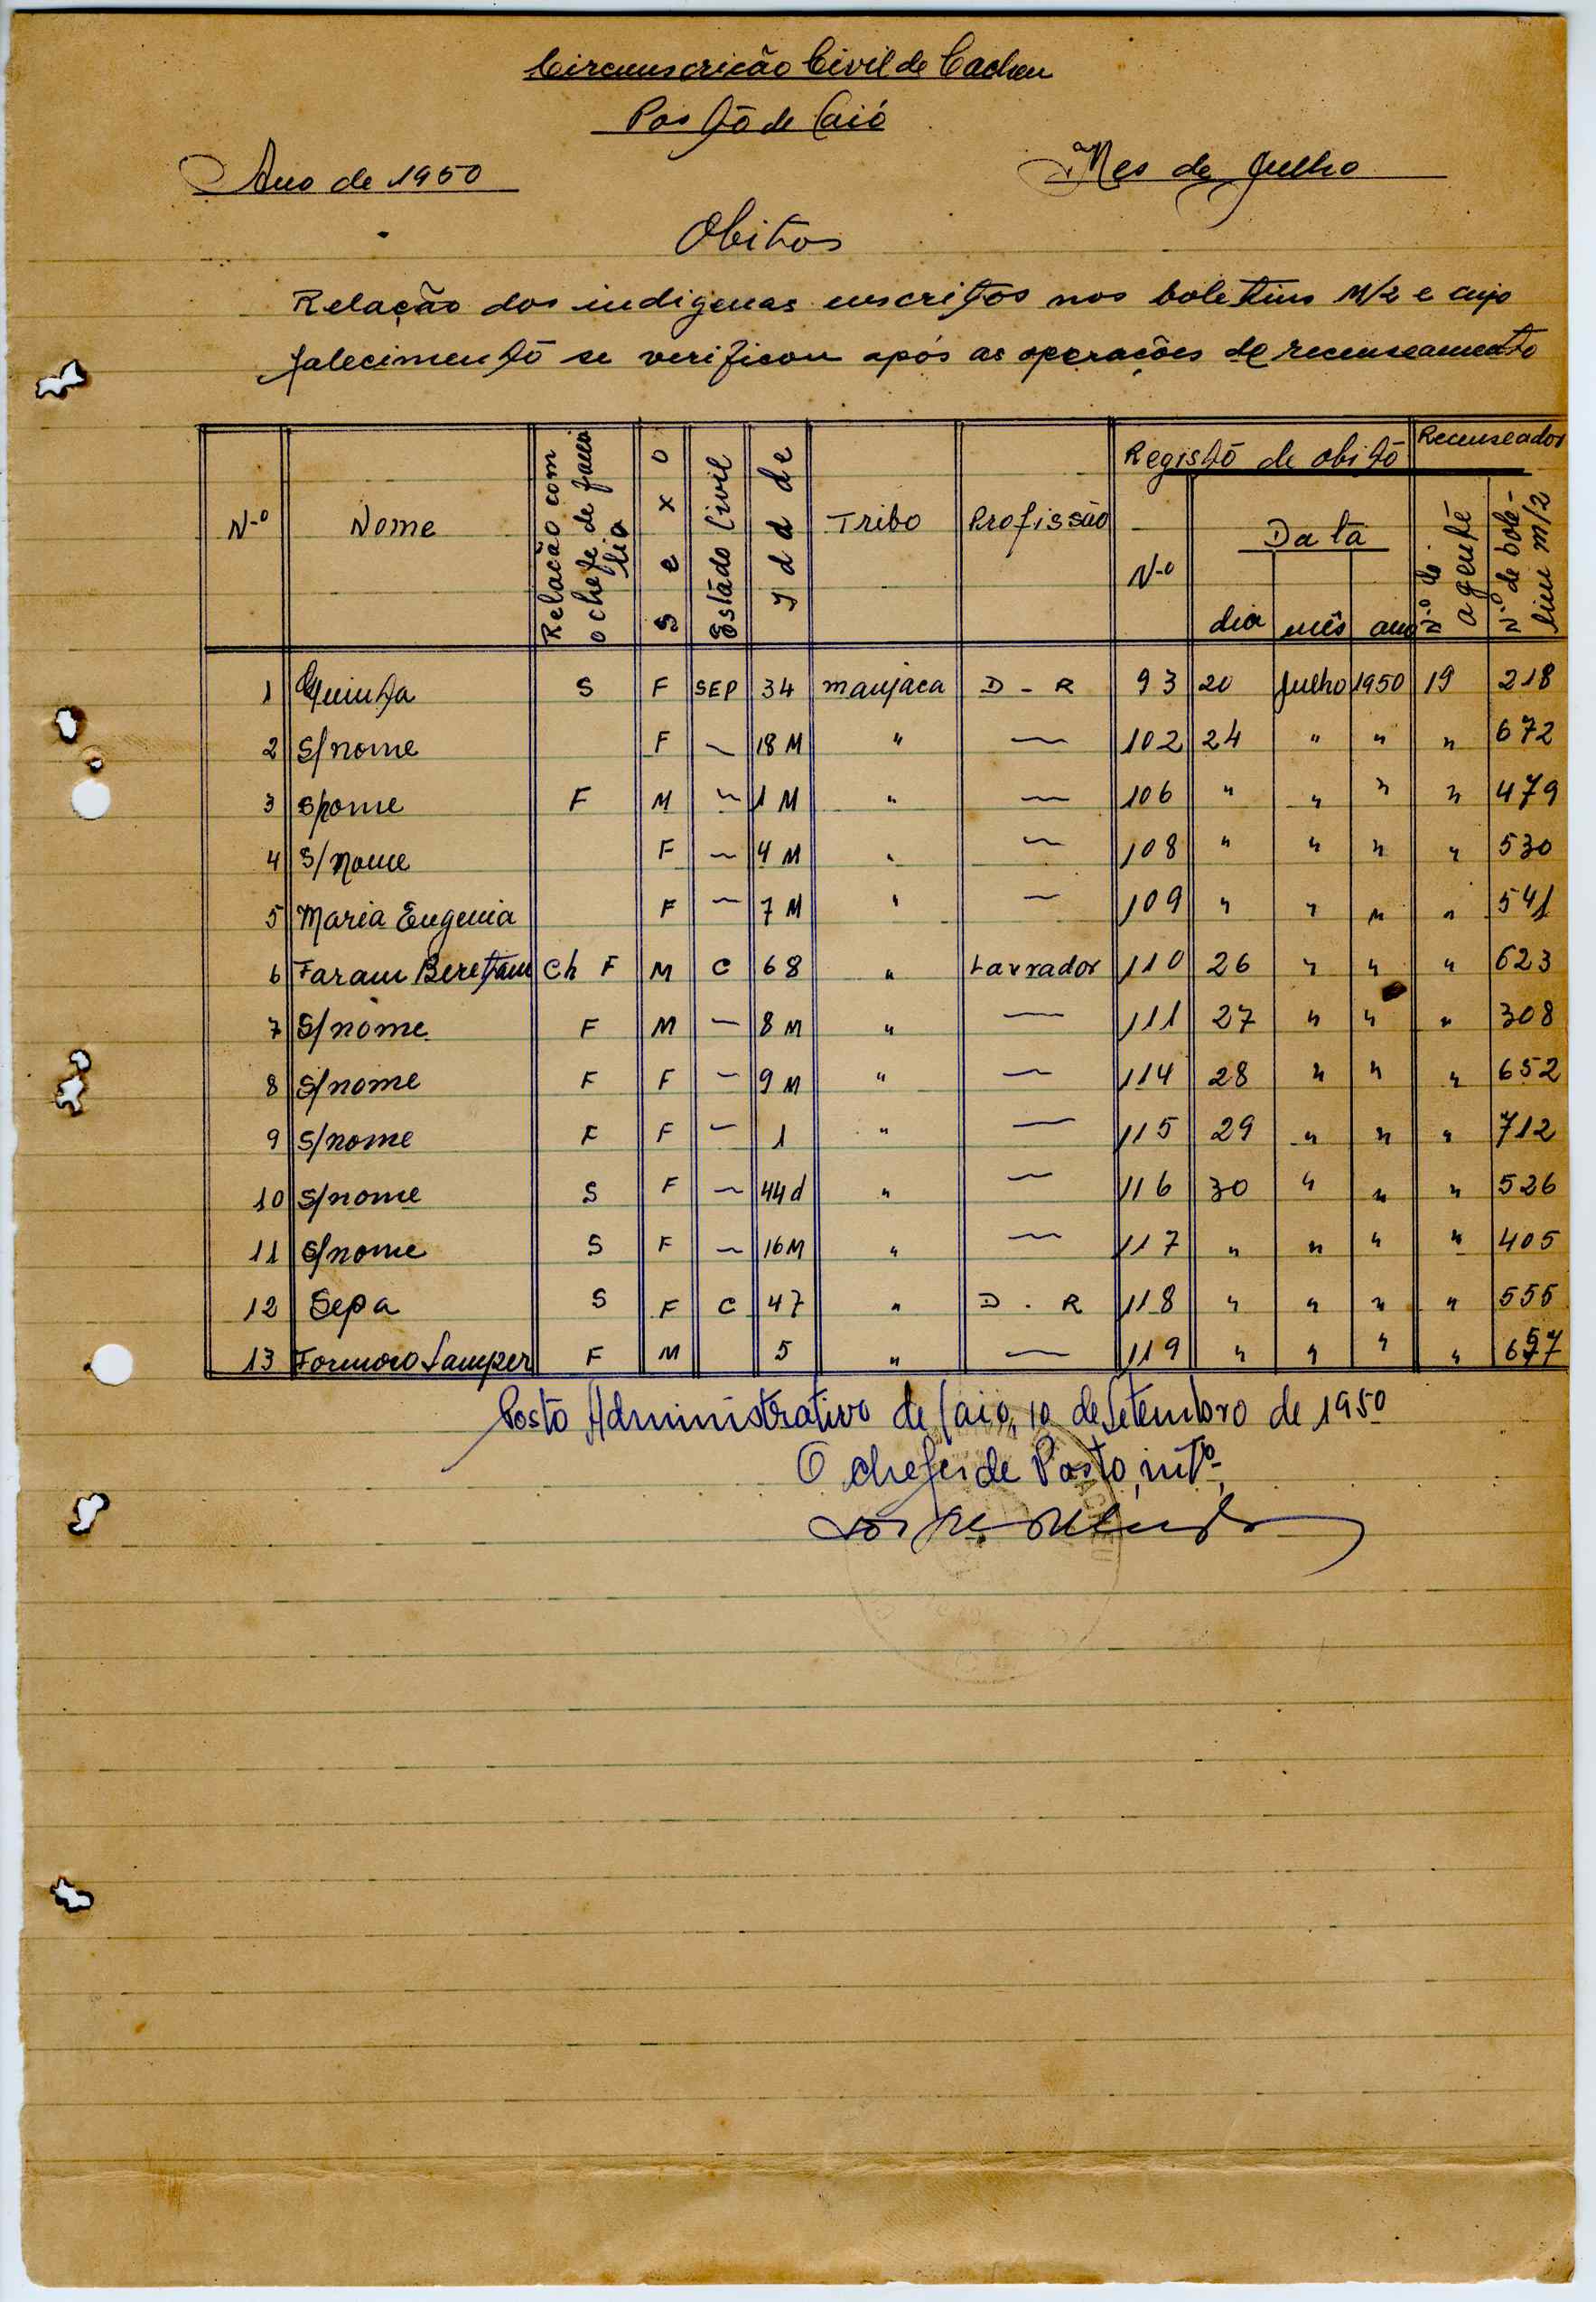 Circunscrição Civil de Cacheu
Posto de Caió
Ano de 1950 Mes de Julho
Obitos
Relação dos indigenas inscritos nos boletins M/2 e cujo
falecimento se verificou após as operações de recenseamento
N-o Nome Relacão com o chefe de familia Sexo Estado Civil Idade Tribo Profissão Registo de obito N-o Data dia mês ano Recenseador N.o de agente N.o de boletim m/2
1 Quinta S F SEP 34 manjaca D - R 93 20 Julho 1950 19 218
2 S/nome F — 18 M " — 102 24 " " " 672
3 S/nome F M — 1 M " — 106 " " " " 479
4 S/nome F — 4 M " — 108 " " " " 530
5 Maria Eugenia F — 7 M " — 109 " " " " 541
6 Faram Beretam Ch F M C 68 " Lavrador 110 26 " " " 623
7 S/nome F M — 8 M " — 111 27 " " " 308
8 S/nome F F — 9 M " — 114 28 " " " 652
9 S/nome F F — 1 " — 115 29 " " " 712
10 S/nome S F — 44 d " — 116 30 " " " 526
11 S/nome S F — 16 M " — 117 " " " " 405
12 Sepa S F C 47 " D - R 118 " " " " 555
13 Formoso Samper F M 5 " — 119 " " " "
Posto Administrativo de Caio, 10 de Setembro de 1950
O chefe de Posto, intº,